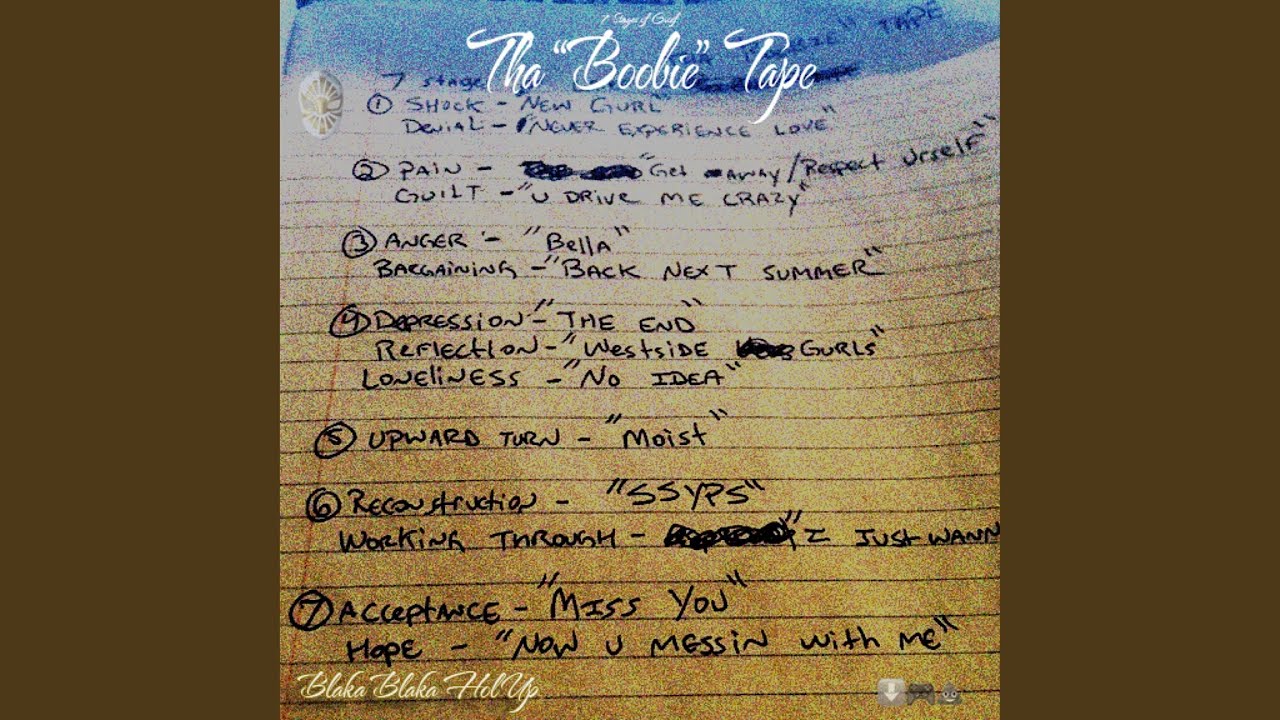 7 Stages of Grief
Tha "Boobie" Tape
TAPE
7 stage
① SHOCK - "NEW GURL"
DENIAL - "NEVER EXPERIENCE LOVE"
② PAIN - "Get AWAY/Respect Urself"
GUILT - "U DRIVE ME CRAZY"
③ ANGER - "Bella"
BARGAINING - "BACK NEXT SUMMER"
④ DEPRESSION - "THE END"
REFLECTION - "WESTSIDE GURLS"
LONELINESS - "NO IDEA"
⑤ UPWARD TURN - "Moist"
⑥ RECONSTRUCTION - "SSYPS"
WORKING THROUGH - "I JUST WANN
⑦ ACCEPTANCE - "MISS YOU"
HOPE - "NOW U MESSIN WITH ME"
Blaka Blaka Hol Up